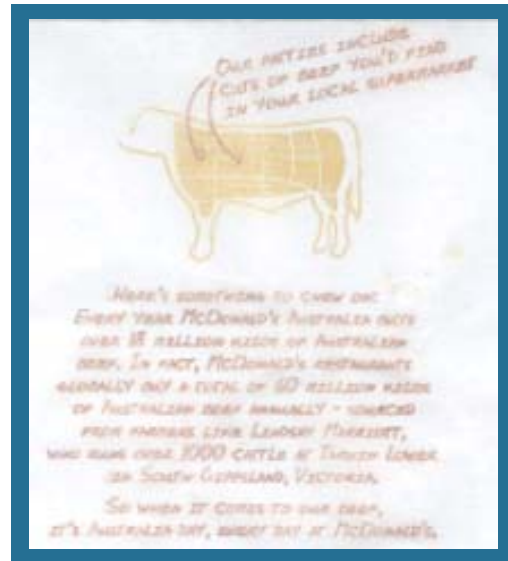 OUR PATTIES INCLUDE
CUTS OF BEEF YOU'D FIND
IN YOUR LOCAL SUPERMARKET
HERE'S SOMETHING TO CHEW ON:
EVERY YEAR MCDONALD'S AUSTRALIA BUYS
OVER 18 MILLION KILOS OF AUSTRALIAN
BEEF. IN FACT, MCDONALD'S RESTAURANTS
GLOBALLY BUY A TOTAL OF 60 MILLION KILOS
OF AUSTRALIAN BEEF ANNUALLY - SOURCED
FROM FARMERS LIKE LINDSAY MARRIOTT,
WHO RUNS OVER 1000 CATTLE AT TARWIN LOWER
IN SOUTH GIPPSLAND, VICTORIA.
SO WHEN IT COMES TO OUR BEEF,
IT'S AUSTRALIA DAY, EVERY DAY AT MCDONALD'S.